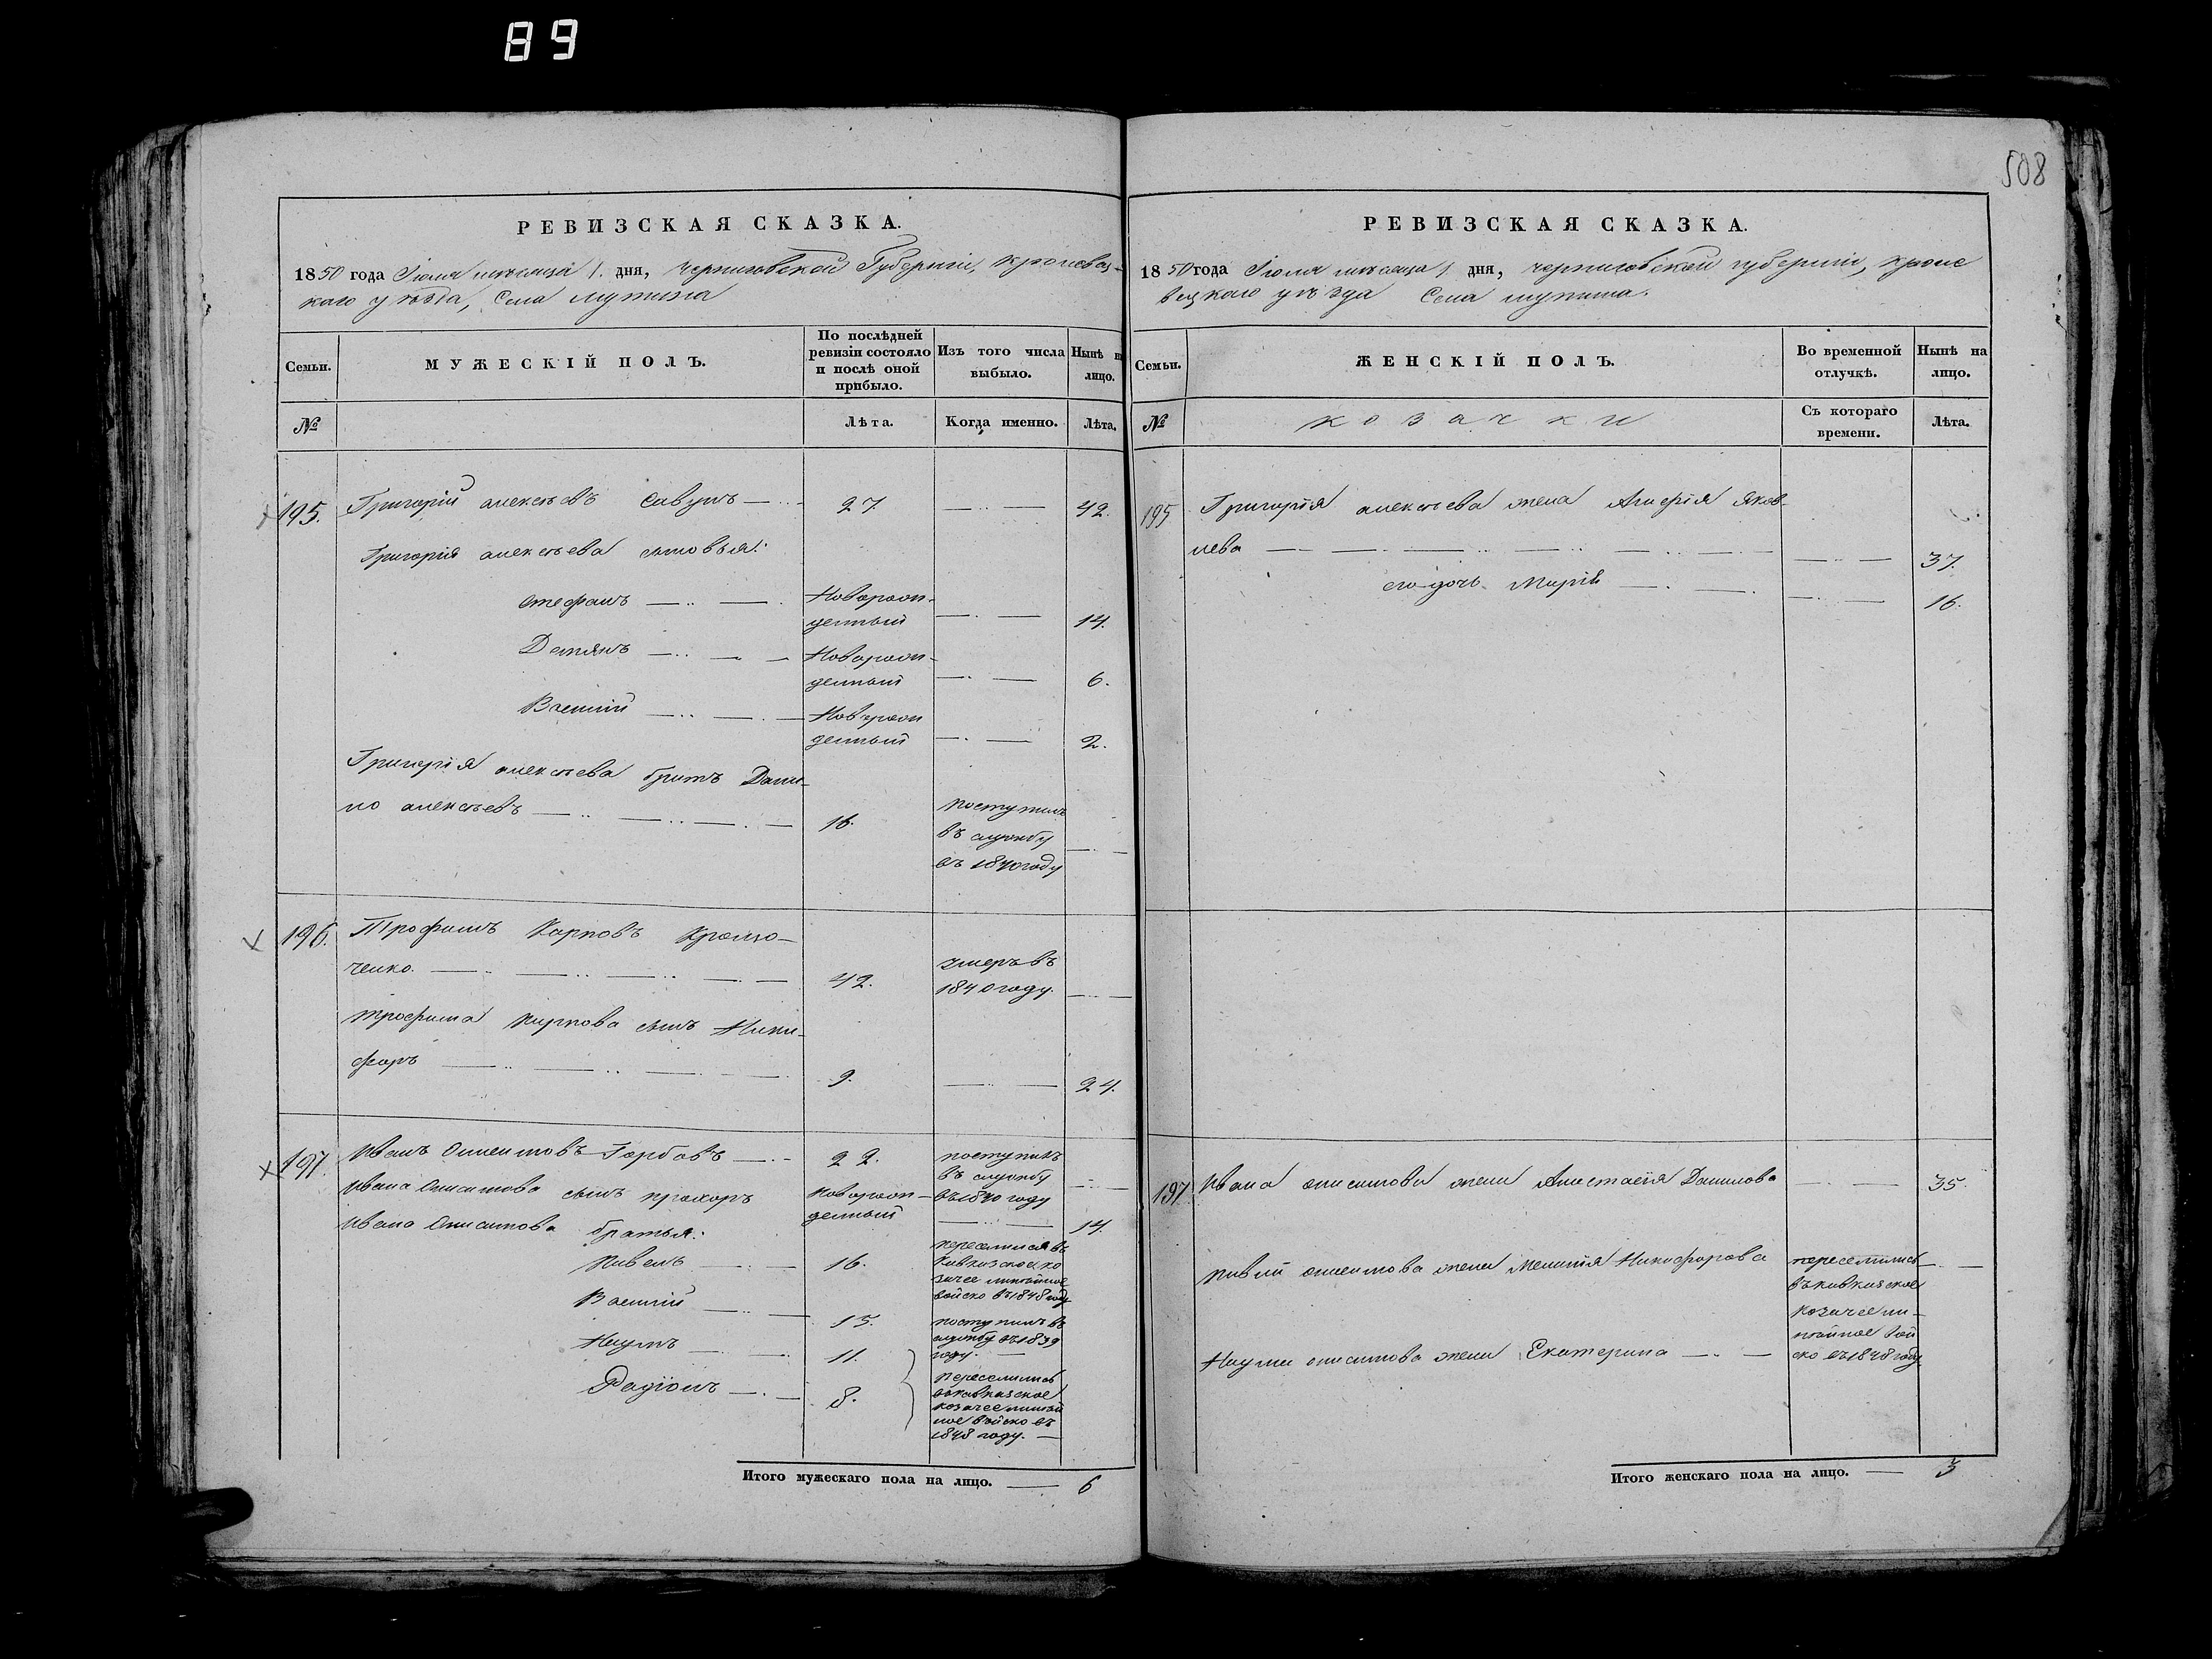 89
508
РЕВИЗСКАЯ СКАЗКА.
1850 года Іюля мѣсяца 1. дня, Черниговской Губерніи, Кролевец-
каго уѣзда, Села Мутина
Семьи.
МУЖЕСКІЙ ПОЛЪ.
По послѣдней ревизіи состояло и послѣ оной прибыло.
Изъ того числа выбыло.
Нынѣ на лицо.
№
Лѣта.
Когда именно.
Лѣта.
195. Григорій алексѣевъ Савунъ 27 42.
Григорія алексѣева сыновья:
Стефанъ Новорож-
денный 14.
Демянъ Новорож-
денный 6.
Василій Новорож
денный 2.
Григорія алексѣева братъ Дани-
ло алексѣевъ 16. поступилъ
въ службу
въ 1840 году
196. Трофимъ Карповъ
42. умеръ въ
1840 году.
трофима Карпова сынъ Ники-
форъ 9. 24.
197 Иванъ Онисимовъ Горбовъ 22. поступилъ
въ службу
въ 1840 году
Ивана Онисимова сынъ прохоръ новорож-
денный 14.
Ивана Онисимова братья:
Павелъ 16. переселился въ
Кавказское ко
зачее линѣйное
войско въ 1848 году
Василій 15. поступилъ въ
службу въ 1839
году.
Наумъ 11.
Радіонъ 8. переселились
въ кавказское
козачее линѣй
ное войско въ
1848 году.
Итого мужескаго пола на лицо. 6
РЕВИЗСКАЯ СКАЗКА.
1850 года Іюля мѣсяца 1. дня, черниговской губерніи, кроле
вецкаго уѣзда Села мутина.
Семьи.
ЖЕНСКІЙ ПОЛЪ.
Во временной отлучкѣ.
Нынѣ на лицо.
№
козачки
Съ котораго времени.
Лѣта.
195 Григорія алексѣева жена Яков-
лева 37.
его дочь Марія 16.
197. Ивана онисимова жена Анастасія Данилова 35.
Павла онисимова жена Меланія Никифорова переселились
въ кавказское
козачее ли-
нѣйное вой
ско въ 1848 году
Наума онисимова жена Екатерина
Итого женскаго пола на лицо. 3